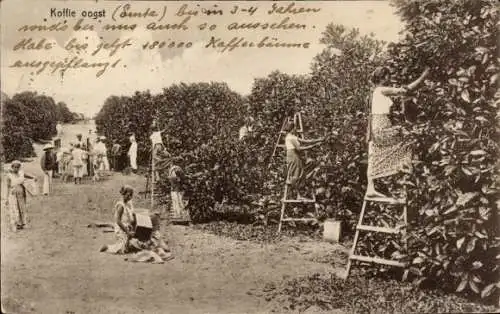 Koffie oogst (Ernte) bis in 3-4 Jahren
wird's bei uns auch so aussehen.
Habe bis jetzt 180000 Kaffeebäume
ausgepflanzt.